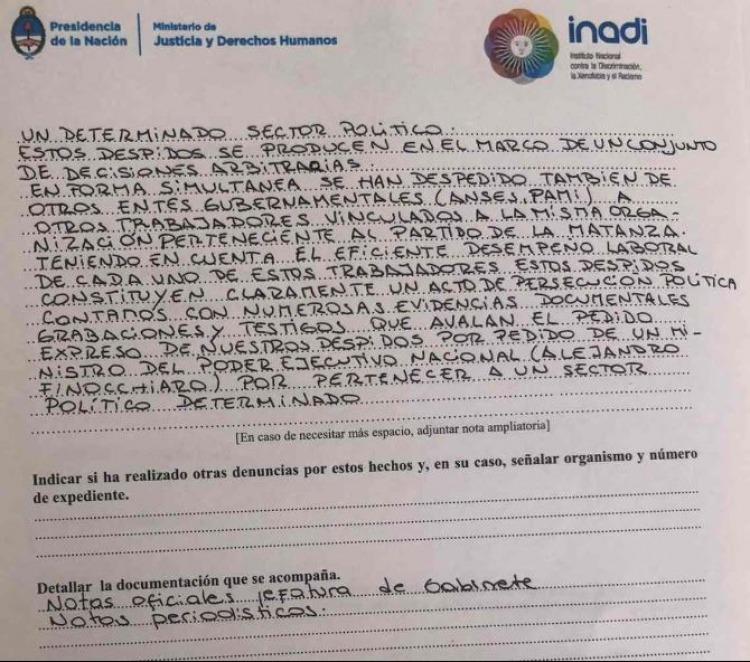 Presidencia
de la Nación
Ministerio de
Justicia y Derechos Humanos
inadi
Instituto Nacional
contra la Discriminación,
la Xenofobia y el Racismo
UN DETERMINADO SECTOR POLITICO.
ESTOS DESPIDOS SE PRODUCEN EN EL MARCO DE UN CONJUNTO
DE DECISIONES ARBITRARIAS.
EN FORMA SIMULTANEA SE HAN DESPEDIDO TAMBIEN DE
OTROS ENTES GUBERNAMENTALES (ANSES, PAMI) A
OTROS TRABAJADORES VINCULADOS A LA MISMA ORGA-
NIZACIÓN PERTENECIENTE AL PARTIDO DE LA MATANZA.
TENIENDO EN CUENTA EL EFICIENTE DESEMPEÑO LABORAL
DE CADA UNO DE ESTOS TRABAJADORES ESTOS DESPIDOS
CONSTITUYEN CLARAMENTE UN ACTO DE PERSECUCION POLÍTICA
CONTAMOS CON NUMEROSAS EVIDENCIAS DOCUMENTALES
GRABACIONES Y TESTIGOS QUE AVALAN EL PEDIDO
EXPRESO DE NUESTROS DESPIDOS POR PEDIDO DE UN MI-
NISTRO DEL PODER EJECUTIVO NACIONAL (ALEJANDRO
FINOCCHIARO) POR PERTENECER A UN SECTOR
POLÍTICO DETERMINADO
[En caso de necesitar más espacio, adjuntar nota ampliatoria]
Indicar si ha realizado otras denuncias por estos hechos y, en su caso, señalar organismo y número
de expediente.
Detallar la documentación que se acompaña.
Notas oficiales jefatura de Gabinete
Notas periodisticas.